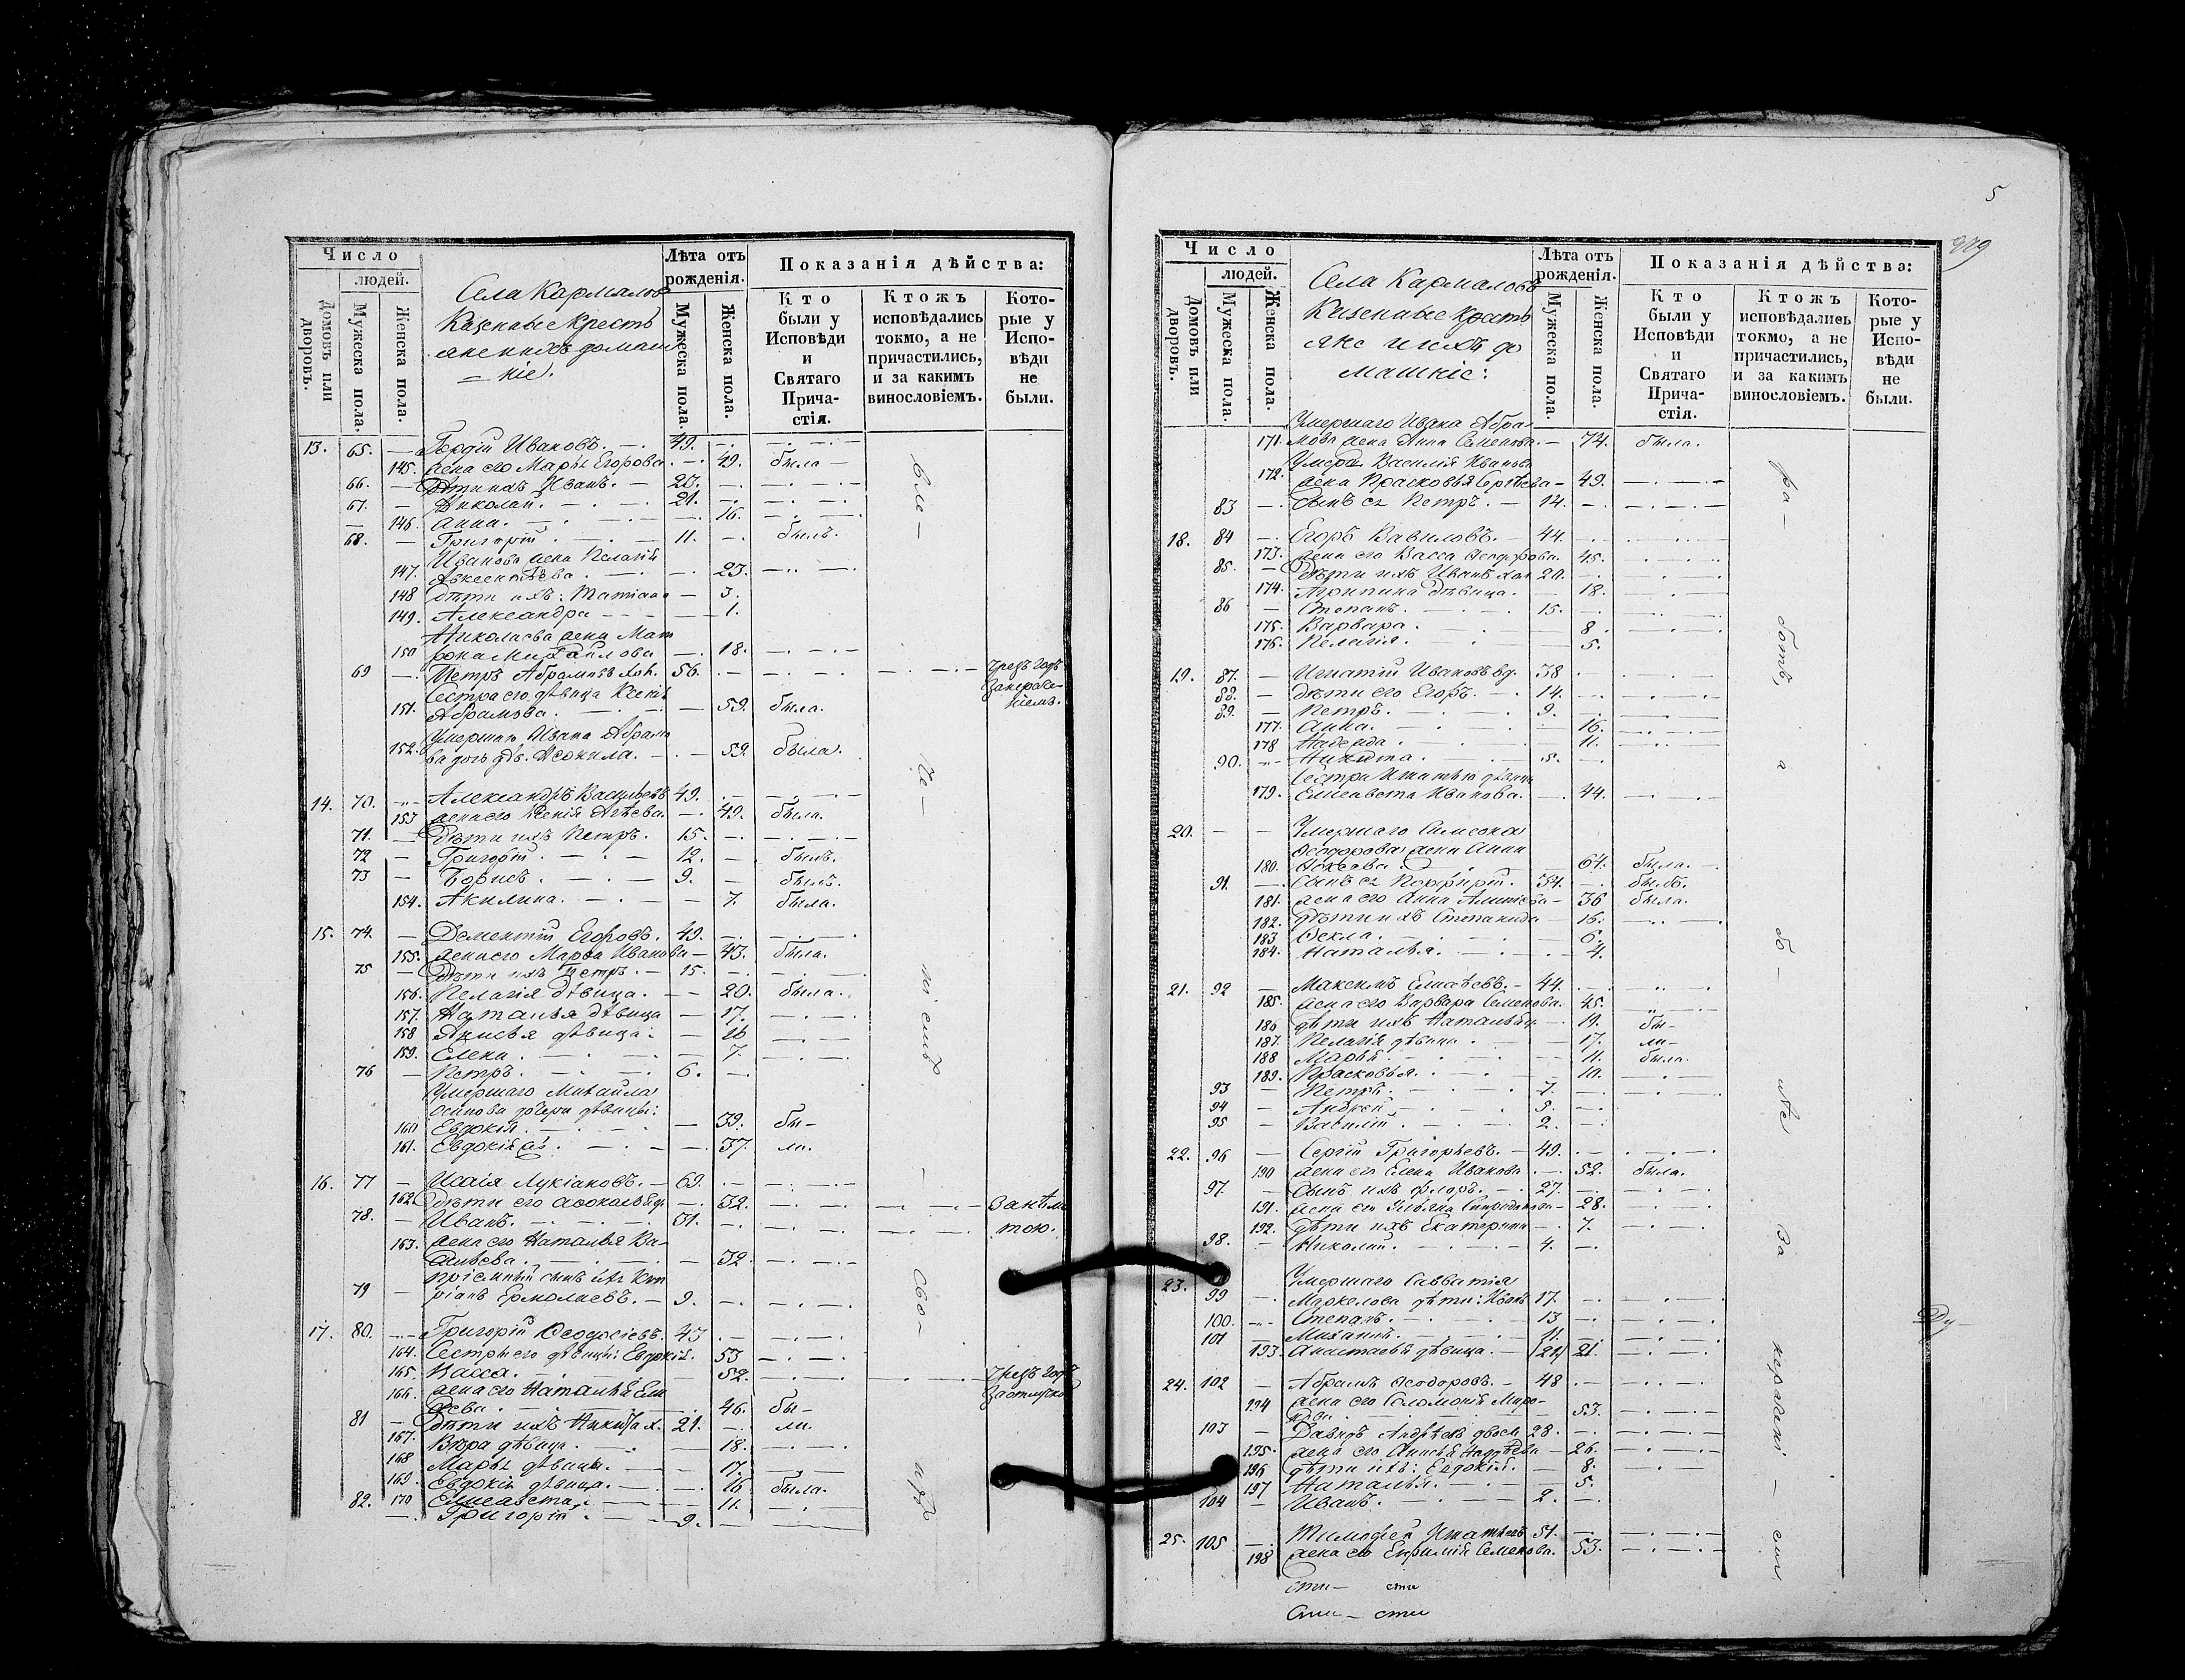 Число
людей.
Домовъ или дворовъ.
Мужеска пола.
Женска пола.
Села Кармалов
Казенные крестъ
яне ихъ домаш
= ніе.
Лѣта отъ рожденія.
Мужеска пола.
Женска пола.
Показанія дѣйства:
Кто были у Исповѣди и Святаго Причастія.
Ктожъ исповѣдались токмо, а не причастились, и за какимъ винословіемъ.
Которые у Исповѣди не были.
13. 65. — Гордій Ивановъ. — 49.
145. жена его Марья Егорова. — 49. была —
66. — Дѣти ихъ Иванъ. — 25.
67. — Николай. — 21.
— 146. Анна. — 16.
68. — Григорій — 11. — былъ.
Иванова жена Пелагія
147. Авксентьева. — 23.
148 дѣти ихъ: Татіана — 3.
149. Александра — 1.
Николаева жена Мат
150 рона Михайлова — 18.
69 — Петръ Абрамовъ хол. 56. чрезъ годъ
Сестра его дѣвица Ксенія
151. Абрамова. — 59. была.
Умершаго Ивана Абрамо
152. ва дочь дѣв. Неонила. — 59. была.
14. 70. — Александръ Васильевъ 49.
153 жена его Ксенія — 49. была.
71. — Дѣти ихъ Петръ. 15.
72 — Григорій. — 12. — былъ.
73 — Борисъ. — 9. — былъ.
154. Акилина. — 7. была.
15. 74. — Дементій Егоровъ. 49.
155. жена его Марѳа Иванова — 43. была.
75 — Дѣти ихъ Петръ. — 15.
156. Пелагія дѣвица. — 20. была.
157. Наталья дѣвица — 17.
158 Анисья дѣвица. — 16
159. Елена. — 7.
76 — Петръ. — 6.
Умершаго Михайла
Осипова дочери дѣвицы:
160 Евдокія. — 39. бы-
161. Евдокія — 37. ли.
16. 77 — Исаія Лукіановъ. — 69.
162. Дѣти его — 32.
78. — Иванъ. — 31.
163. жена его Наталья Ва-
сильева. — 32.
пріемный сынъ ихъ Кип
79 — ріанъ Ермолаевъ. — 9.
17. 80. — Григорій 43
164. Сестры его дѣвицы: Евдокія. 53
165. Васса. — 52. чрезъ годъ
166. жена его Наталья Ели
сѣева. — 46. бы-
81 — Дѣти ихъ Никита х. 21. ли.
167. Вѣра дѣвица. — 18.
168 Марья дѣвица. — 17.
169. Евдокія дѣвица. — 16 была.
170 Елисавета. — 11.
82. — Григорій. — 9.
5
909
Число
людей.
Домовъ или дворовъ.
Мужеска пола.
Женска пола.
Села Кармаловъ
Казенные кресть
яне и ихъ до
машніе:
Лѣта отъ рожденія.
Мужеска пола.
Женска пола.
Показанія дѣйства:
Кто были у Исповѣди и Святаго Причастія.
Ктожъ исповѣдались токмо, а не причастились, и за какимъ винословіемъ.
Которые у Исповѣди не были.
Умершаго Ивана Абра
171. мова жена Анна Семенова. — 74. была.
Умерш. Василія Иванова
172. жена Прасковья Сергѣева — 49.
83 — Сынъ ея Петръ. — 14.
18. 84 — Егоръ Вавиловъ. — 44.
173. жена его Васса Ѳеодорова. 45.
85. — Дѣти ихъ Иванъ хол 20.
174. Агрипина дѣвица. — 18.
86 — Степанъ. — 15.
175. Варвара. — 8.
176. Пелагія. — 5.
19. 87. — Игнатій Ивановъ вд. 38
88. — дѣти его Егоръ. — 14.
89. — Петръ. — 9.
177. Анна. — 16.
178 Надежда. — 11.
90. — Никита. — 5.
Сестра Игнатья дѣвица
179. Елисавета Иванова. — 44.
20. — — Умершаго Симеона
Ѳеодорова жена Анна
180. — 67. была.
91. — Сынъ ея Порфирій. 34. — былъ.
181. жена его Анна — 36 была.
182. Дѣти ихъ Степанида — 16.
183 Ѳекла. — 6.
184. Наталья. — 4.
21. 92 — Максимъ Елисѣевъ. — 44.
185. жена его Варвара Семенова. 45.
186 дѣти ихъ Наталья — 19. бы-
187. Пелагія дѣвица. — 17. ли-
188 Марья. — 11. была.
189. Прасковья. — 10.
93 — Петръ. — 7.
94 — Андрей. — 5.
95 — Василій. — 2.
22. 96 — Сергій Григорьевъ. — 49.
190 жена его Елена Иванова. — 52. была.
97. — Сынъ ихъ Флоръ. — 27.
191. жена его Ульяна Спиридонова — 28.
192. дѣти ихъ Екатерина — 7.
98. — Николай. — 4.
23. Умершаго Савватія
99 — Маркелова дѣти: Иванъ 17.
100. — Степанъ. — 13
101 — Михаилъ. — 11.
193. Анастасія дѣвица. — 21.
24. 102 — Абрамъ Ѳеодоровъ. — 48
194 жена его Соломонія Миро-
нова. — 53.
103 — Давидъ Андреевъ 28.
195. жена его Анисья — 26.
196 дѣти ихъ: Евдокія. — 8.
197 Наталья. — 5.
104 — Иванъ. — 2.
25. 105 — Тимофей Игнатьевъ 51.
198 жена его Ефимія Семенова. 53.